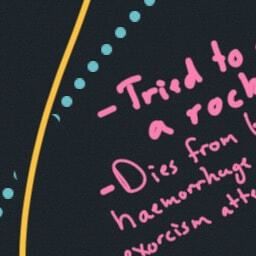 -Tried to
a rock
-Dies from
haemorrhage
exorcism atte